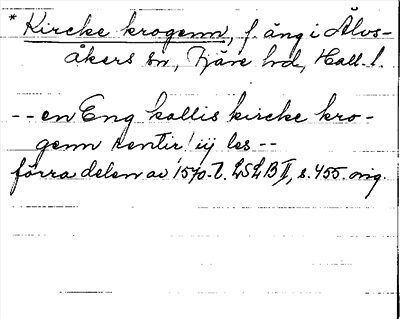 * Kircke krogenn, f. äng i Älvs-
åkers sn, Fjäre hd, Hall. l.
-- en Eng kallis kircke kro-
genn rentir! iij les --
förra delen av 1570-t. LSLB II, s. 455. orig.